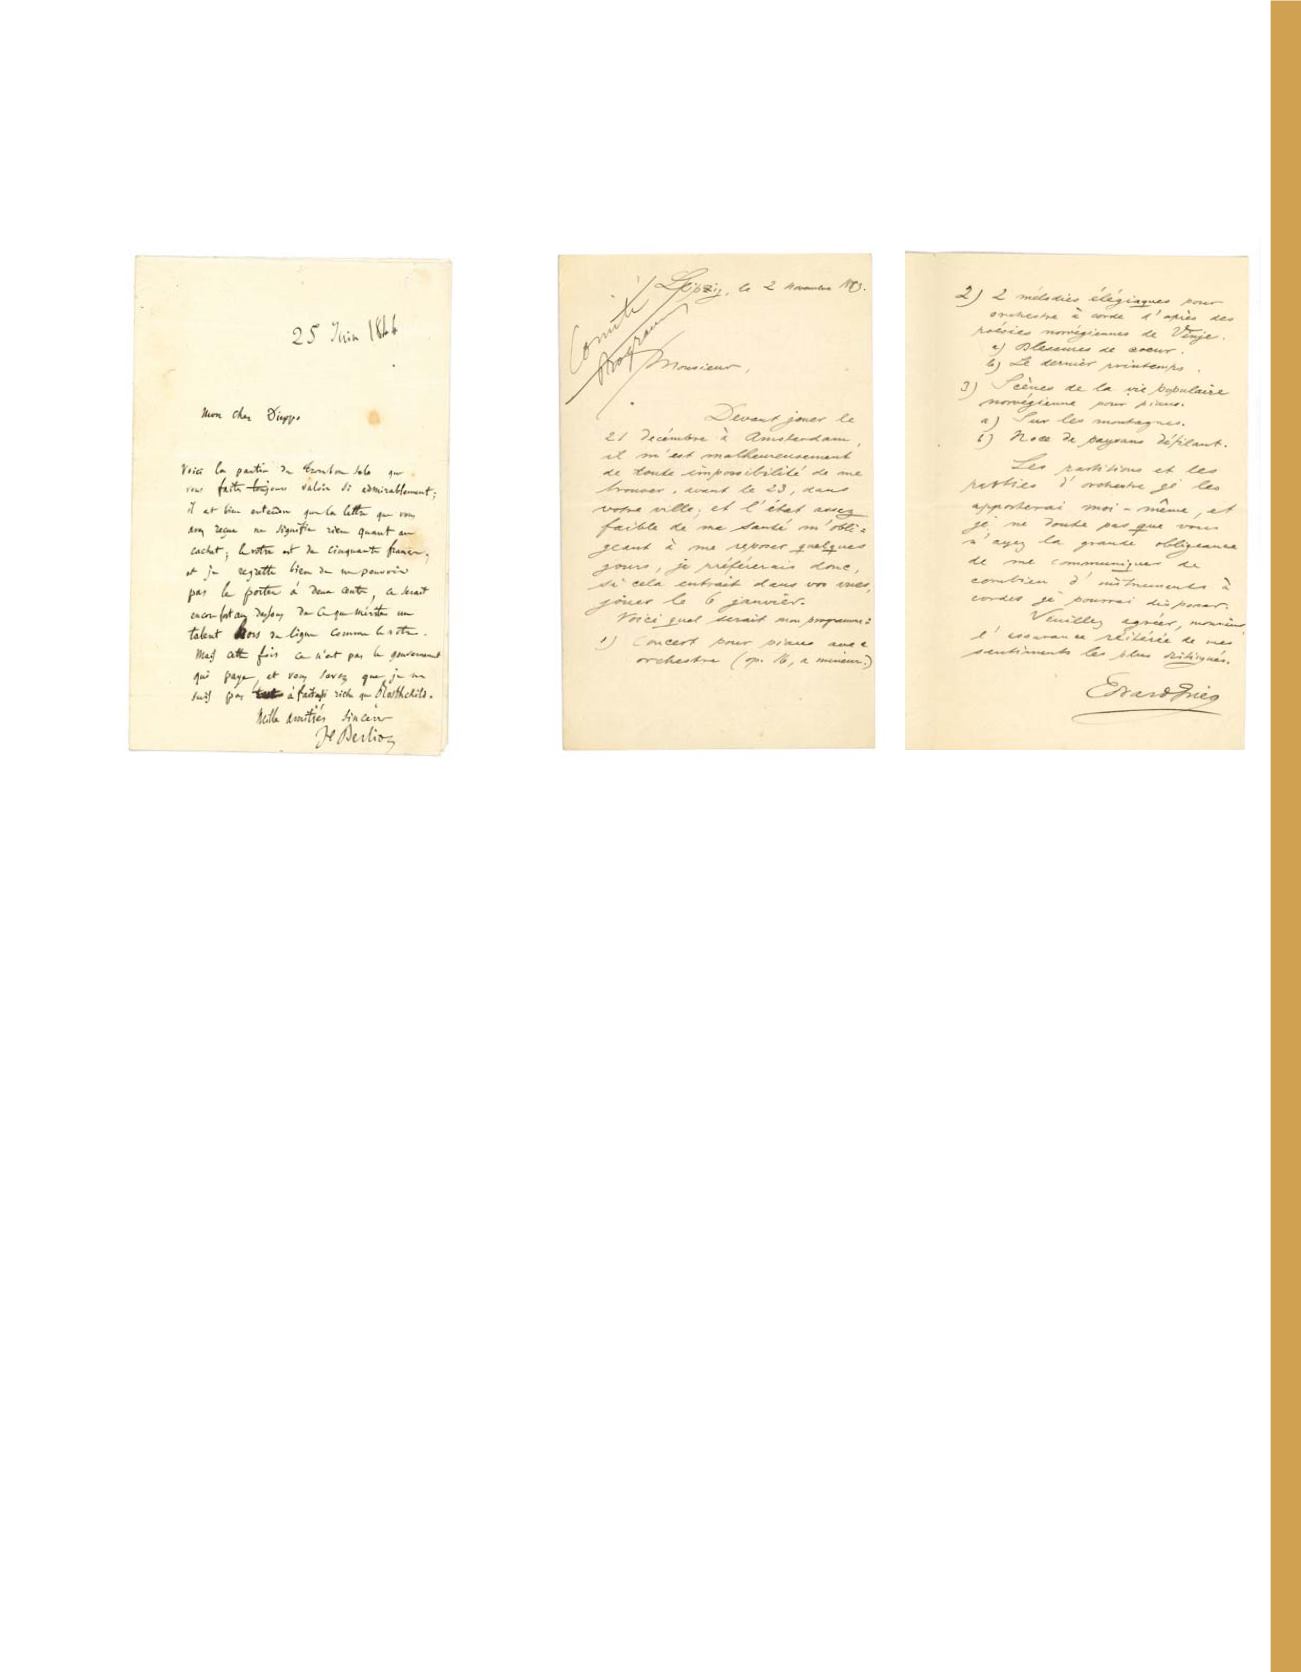 25 Juin 1844
Mon cher Dieppo
Voici la partie de Trombone Solo que
vous faites toujours valoir si admirablement;
il est bien entendu que la lettre que vous
avez reçue ne signifie rien quant au
cachet; le votre est de cinquante francs;
et je regrette bien de ne pouvoir
pas le porter à deux cents, ce serait
encor fort au dessous de ce que mérite un
talent hors de ligne comme le votre.
Mais cette fois ce n'est pas le gouvernement
qui paye, et vous savez que je ne
suis pas à fait riche que Rothschild.
Mille amitiés sincères
H Berlioz
Comité
Program
Leipzig, le 2 novembre
Monsieur,
Devant jouer le
21 decémbre à Amsterdam,
il m'est malheureusement
de toute impossibilité de me
trouver, avant le 23, dans
votre ville; et l'état assez
faible de ma santé m'obli=
geant à me reposer quelques
jours, je préférerais donc,
si cela entrait dans vos vues,
jouer le 6 janvièr.
Voici quel serait mon programme:
1) Concert pour piano avec
orchestre (op. 16, a mineur.)
2) 2 mélodies élégiaques pour
orchestre à corde d'après des
poésies norvégiennes de Vinje.
a) Blessures de coeur.
b) Le dernier printemps.
3) Scènes de la vie populaire
norvégienne pour piano.
a) Sur les montagnes.
b) Noce de paysans défilant.
Les partitions et les
parties d'orchestre je les
apporterai moi-même, et
je ne doute pas que vous
n'ayez la grande obligeance
de me communiquer de
combien d'instruments à
cordes je pourrai disposer.
Veuillez agréer, monsieur
l'assurance réitérée de mes
sentiments les plus distingués.
Edvard Grieg